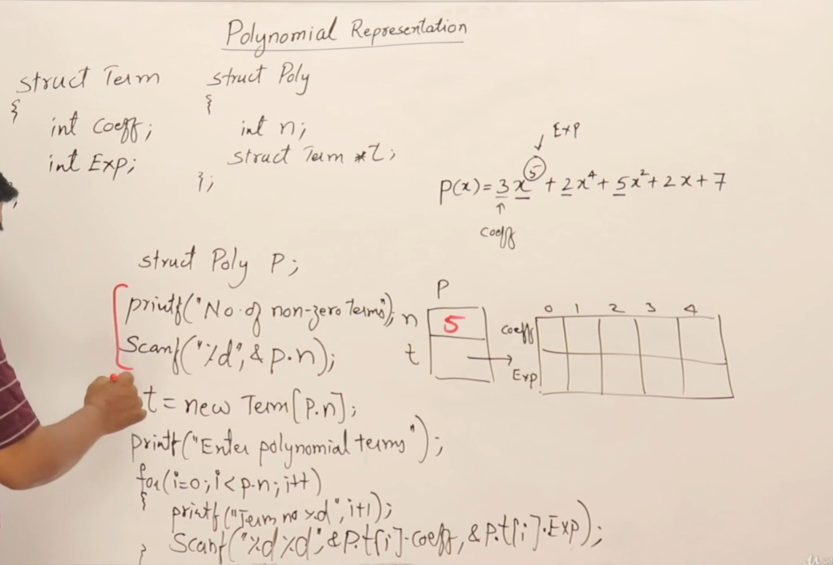 Polynomial Representation
struct Term
{
int coeff;
int Exp;
;
struct Poly
{
int n;
struct Term *t;
};
Exp
P(x) = 3x⁵ + 2x⁴ + 5x² + 2x + 7
coeff
struct Poly P;
printf("No. of non-zero terms");
Scanf("%d",&p.n);
t = new Term[P.n];
printf("Enter polynomial terms");
for(i=0;i<p.n;i++)
{
printf("Term no %d",i+1);
Scanf("%d%d",&P.t[i].coeff,&P.t[i].Exp);
}
P
n 5
t
0 1 2 3 4
coeff
Exp